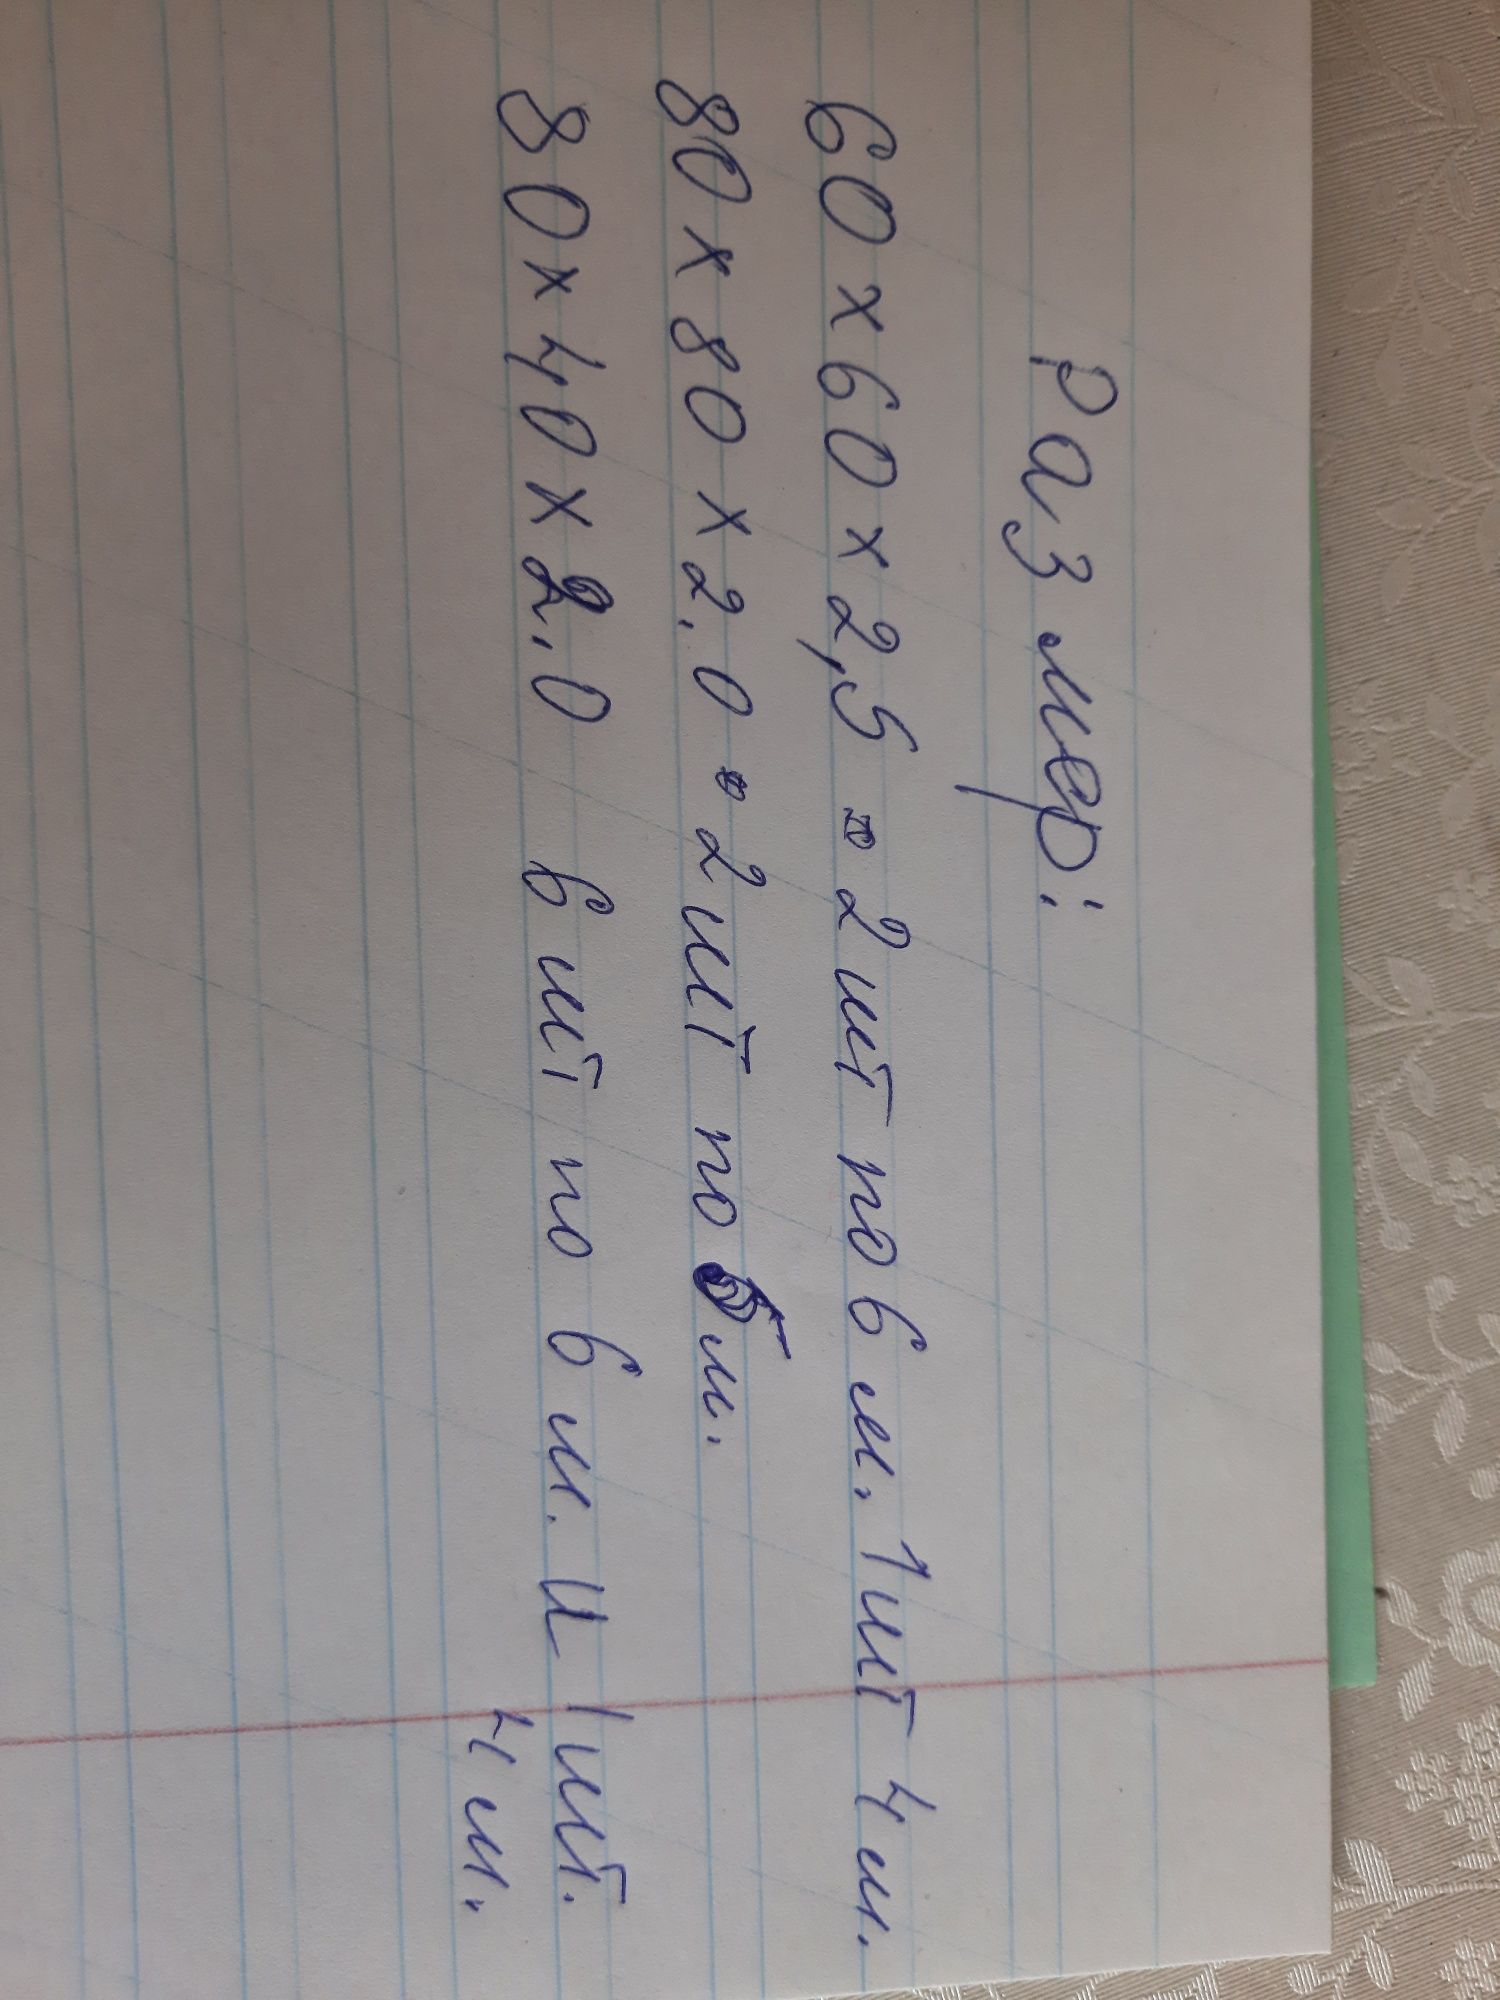 Размер:
60 х 60 х 2,5 - 2 шт по 6 м. 1 шт 4 м.
80 х 80 х 2.0 - 2 шт по м.
80 х 40 х 2.0 6 шт по 6 м. И 1 шт.
4 м.